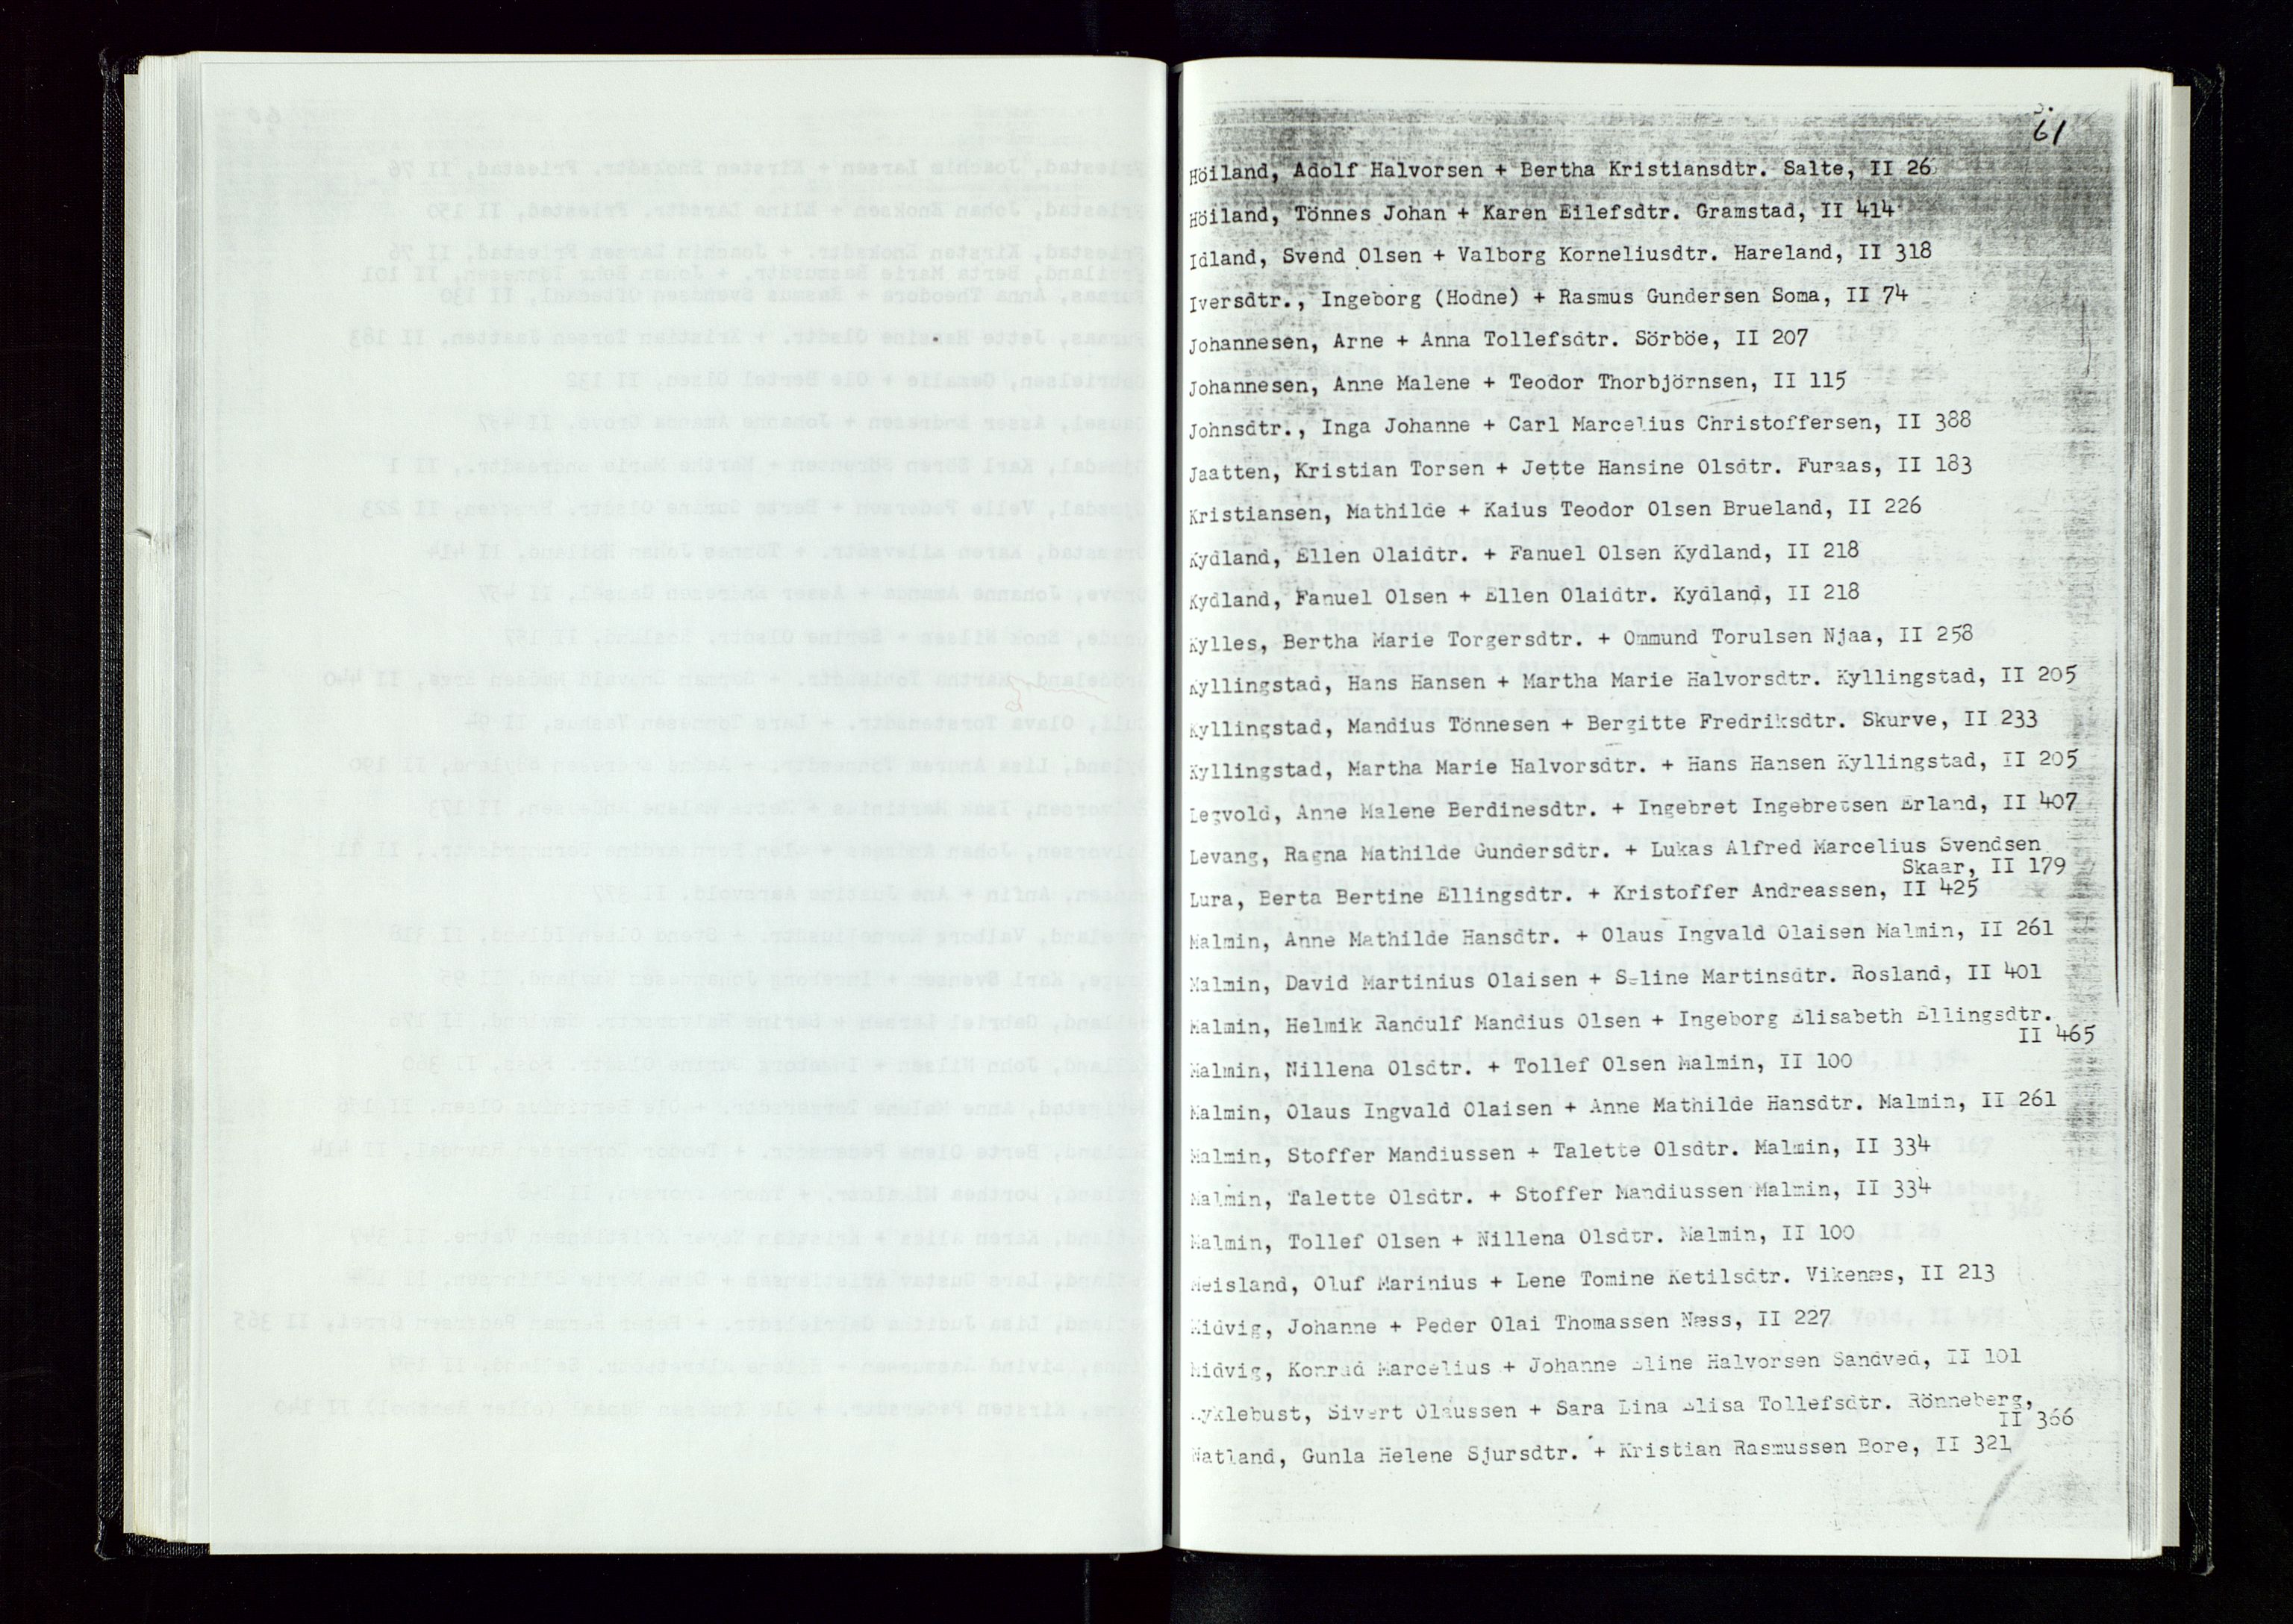 61
Höiland, Adolf Halvorsen + Bertha Kristiansdtr. Salte, II 26
Höiland, Tönnes Johan + Karen Eilefsdtr. Gramstad, II 414
Idland, Svend Olsen + Valborg Korneliusdtr. Hareland, II 318
Iversdtr., Ingeborg (Hodne) + Rasmus Gundersen Soma, II 74
Johannesen, Arne + Anna Tollefsdtr. Sörböe, II 207
Johannesen, Anne Malene + Teodor Thorbjörnsen, II 115
Johnsdtr., Inga Johanne + Carl Marcelius Christoffersen, II 388
Jaatten, Kristian Torsen + Jette Hansine Olsdtr. Furaas, II 183
Kristiansen, Mathilde + Kaius Teodor Olsen Brueland, II 226
Kydland, Ellen Olaidtr. + Fanuel Olsen Kydland, II 218
Kydland, Fanuel Olsen + Ellen Olaidtr. Kydland, II 218
Kylles, Bertha Marie Torgersdtr. + Ommund Torulsen Njaa, II 258
Kyllingstad, Hans Hansen + Martha Marie Halvorsdtr. Kyllingstad, II 205
Kyllingstad, Mandius Tönnesen + Bergitte Fredriksdtr. Skurve, II 233
Kyllingstad, Martha Marie Halvorsdtr. + Hans Hansen Kyllingstad, II 205
Legvold, Anne Malene Berdinesdtr. + Ingebret Ingebretsen Erland, II 407
Levang, Ragna Mathilde Gundersdtr. + Lukas Alfred Marcelius Svendsen
Skaar, II 179
Lura, Berta Bertine Ellingsdtr. + Kristoffer Andreassen, II 425
Malmin, Anne Mathilde Hansdtr. + Olaus Ingvald Olaisen Malmin, II 261
Malmin, David Martinius Olaisen + Seline Martinsdtr. Rosland, II 401
Malmin, Helmik Randulf Mandius Olsen + Ingeborg Elisabeth Ellingsdtr.
II 465
Malmin, Nillena Olsdtr. + Tollef Olsen Malmin, II 100
Malmin, Olaus Ingvald Olaisen + Anne Mathilde Hansdtr. Malmin, II 261
Malmin, Stoffer Mandiussen + Talette Olsdtr. Malmin, II 334
Malmin, Talette Olsdtr. + Stoffer Mandiussen Malmin, II 334
Malmin, Tollef Olsen + Nillena Olsdtr. Malmin, II 100
Meisland, Oluf Marinius + Lene Tomine Ketilsdtr. Vikenæs, II 213
Midvig, Johanne + Peder Olai Thomassen Næss, II 227
Midvig, Konrad Marcelius + Johanne Eline Halvorsen Sandved, II 101
Myklebust, Sivert Olaussen + Sara Lina Elisa Tollefsdtr. Rönneberg,
II 366
Natland, Gunla Helene Sjursdtr. + Kristian Rasmussen Bore, II 321